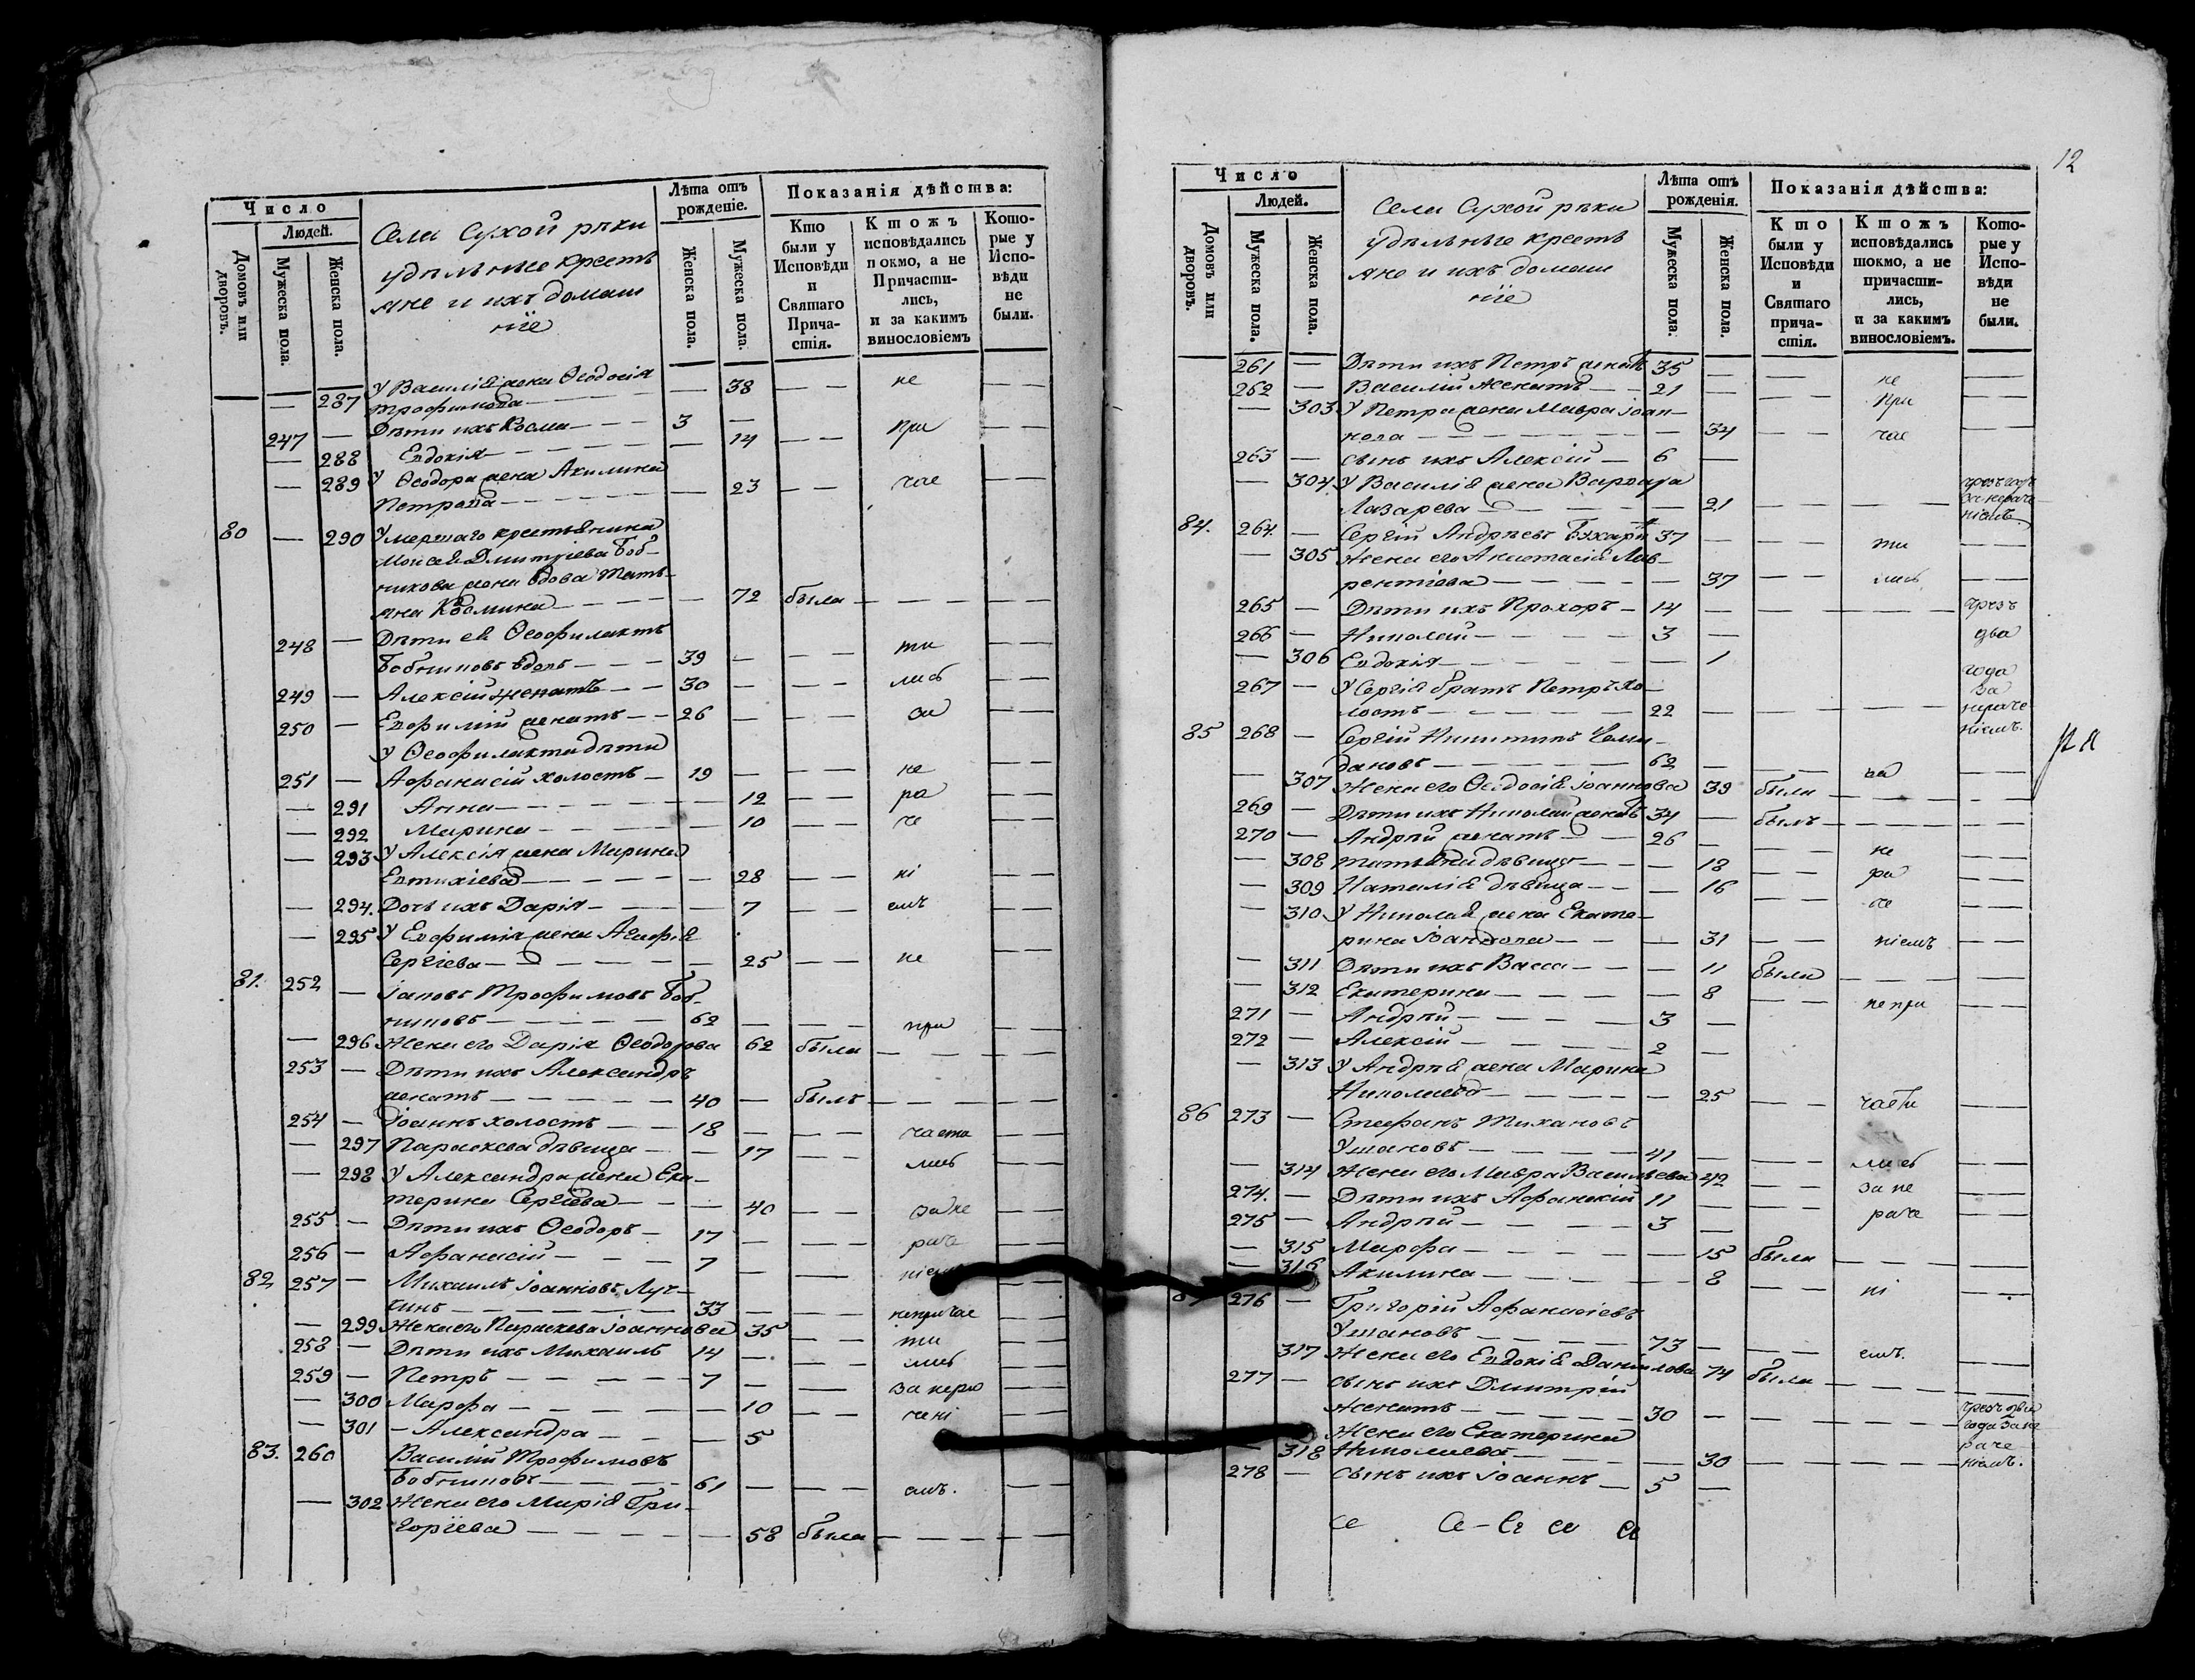 Число
Людей.
Домовъ или дворовъ.
Мужеска пола.
Женска пола.
Села Сухой рѣки
удѣльные кресть
яне и ихъ домаш
ніе
Лѣта отъ рожденіе.
Женска пола.
Мужеска пола.
Показанія дѣйства:
Кто были у Исповѣди и Святаго Прича-стія.
Ктожъ исповѣдались покмо, а не Причасти-лись, и за какимъ винословіемъ
Кото-рые у Испо-вѣди не были.
— 287 У Василія жена Ѳеодосія
Трофимова — 38 — — не — —
247 — Дѣти ихъ Косма — 3 —
— 288 Евдокія — — 14 — — при — —
— 289 У Ѳеодора жена Акилина
Петрова — — 23 — — час — —
80 — 290 Умершаго крестьянина
Моисея Дмитріева Боб-
никова жена вдова Тать-
яна Козмина — — 72 была — — —
248 — Дѣти ея Ѳеофилактъ
Бобниковъ вдовъ — 39 — — — ти — —
249 — Алексій женатъ — 30 — — — лись — —
250 — Евфимій женатъ — 26 — — — за — —
У Ѳеофилакта дѣти
251 — Афанасій холостъ — 19 — — — не — —
— 291 Анна — — 12 — — ра — —
— 292 Марина — — 10 — — че — —
— 293 У Алексія жена Марина
Евтихіева — — 28 — — ні — —
— 294. Дочь ихъ Дарія — — 7 — — емъ — —
— 295 У Евфимія жена Агафія
Сергіева — — 25 — — не — —
81. 252 — Іаковъ Трофимовъ Боб-
никовъ — 62 — — — при — —
— 296 Жена его Дарія Ѳеодорова 62 была — — —
253 — Дѣти ихъ Александръ
женатъ — 40 — былъ — — —
254 — Іоаннъ холостъ — 18 — — — часты — —
— 297 Параскева дѣвица — — 17 — — лись — —
— 298 У Александра жена Ека-
терина Сергіева — — 40 — — за не — —
255 — Дѣти ихъ Ѳеодоръ — 17 — — — раче — —
256 — Афанасій — 7 — — — ніемъ — —
82 257 — Михаилъ Іоанновъ Луч-
кинъ — 33 — — — непричас — —
— 299 Жена его Параскева Іоаннова 35 — — ти — —
258 — Дѣти ихъ Михаилъ 14 — — — лись — —
259 — Петръ — 7 — — — за нера — —
— 300 Марфа — — 10 — — чені — —
— 301 — Александра — — 5
83. 260 Василій Трофимовъ
Бобниковъ — 61 — — — емъ. — —
— 302 Жена его Марія Гри-
горіева — — 58 была — — —
12
Число
Людей.
Домовъ или дворовъ.
Мужеска пола.
Женска пола.
Села Сухой рѣки
удѣльные кресть
яне и ихъ домаш
ніе
Лѣта отъ рожденія.
Мужеска пола.
Женска пола.
Показанія дѣйства:
Кто были у Исповѣди и Святаго прича-стія.
Ктожъ исповѣдались шокмо, а не причасти-лись, и за какимъ винословіемъ.
Кото-рые у Испо-вѣди не были.
261 — Дѣти ихъ Петръ женатъ 35 — — не —
262 — Василій женатъ — 21 — — — при — —
— 303 У Петра жена Мавра Іоан-
нова — — 34 — — час —
263 — сынъ ихъ Алексій — 6 —
— 304 У Василія жена Варвара
Лазарева — — 21 — — — — чрезъ годъ за нераче ніемъ
84. 264. — Сергій Андрѣевъ Бухаринъ 37 — — — ти — —
— 305 Жена его Анастасія Лав-
рентіева — — 37 — — лись — —
265 — Дѣти ихъ Прохоръ — 14 — — — — чрезъ
266 — Николай — 3 — два
— 306 Евдокія — — 1 года
267 — У Сергія братъ Петръ хо-
лостъ — 22 — — — — за нераче
85 268 — Сергій Никитинъ Чему-
дановъ — 62 — — — за — — ніемъ.
— 307 Жена его Ѳеодосія Іоаннова 39 была — — —
269 — Дѣти ихъ Николай женатъ 34 — былъ — — —
270 — Андрѣй женатъ — 26 — — — не — —
— 308 Татьяна дѣвица — — 18 — — ра — —
— 309 Наталія дѣвица — — 16 — — че — —
— 310 У Николая жена Екате-
рина Іоаннова — — 31 — — ніемъ — —
— 311 Дѣти ихъ Васса — — 11 была — — —
— 312 Екатерина — — 8 — — не при — —
271 — Андрѣй — 3 —
272 — Алексій — 2 —
— 313 У Андрѣя жена Марина
Николаева — — 25 — — часты — —
86 273 — Стефанъ Тихановъ
Ушаковъ — 41 — — — лись — —
— 314 Жена его Мавра Васильева 42 — — за не — —
274. — Дѣти ихъ Афанасій 11 — — — раче — —
275 — Андрѣй — 3 —
— 315 Марфа — — 15 была — — —
— 316 Акилина — — 8 — — ні — —
276 — Григорій Афанасіевъ
Ушаковъ — 73 — — — емъ. — —
317 Жена его Евдокія Данилова 74 была — — —
277 — сынъ ихъ Дмитрій
женатъ — 30 — — — — чрезъ два года за не
Жена его Екатерина
— 318 Николаева — — 30 — — — — раче ніемъ.
278 — сынъ ихъ Іоаннъ — 5 —